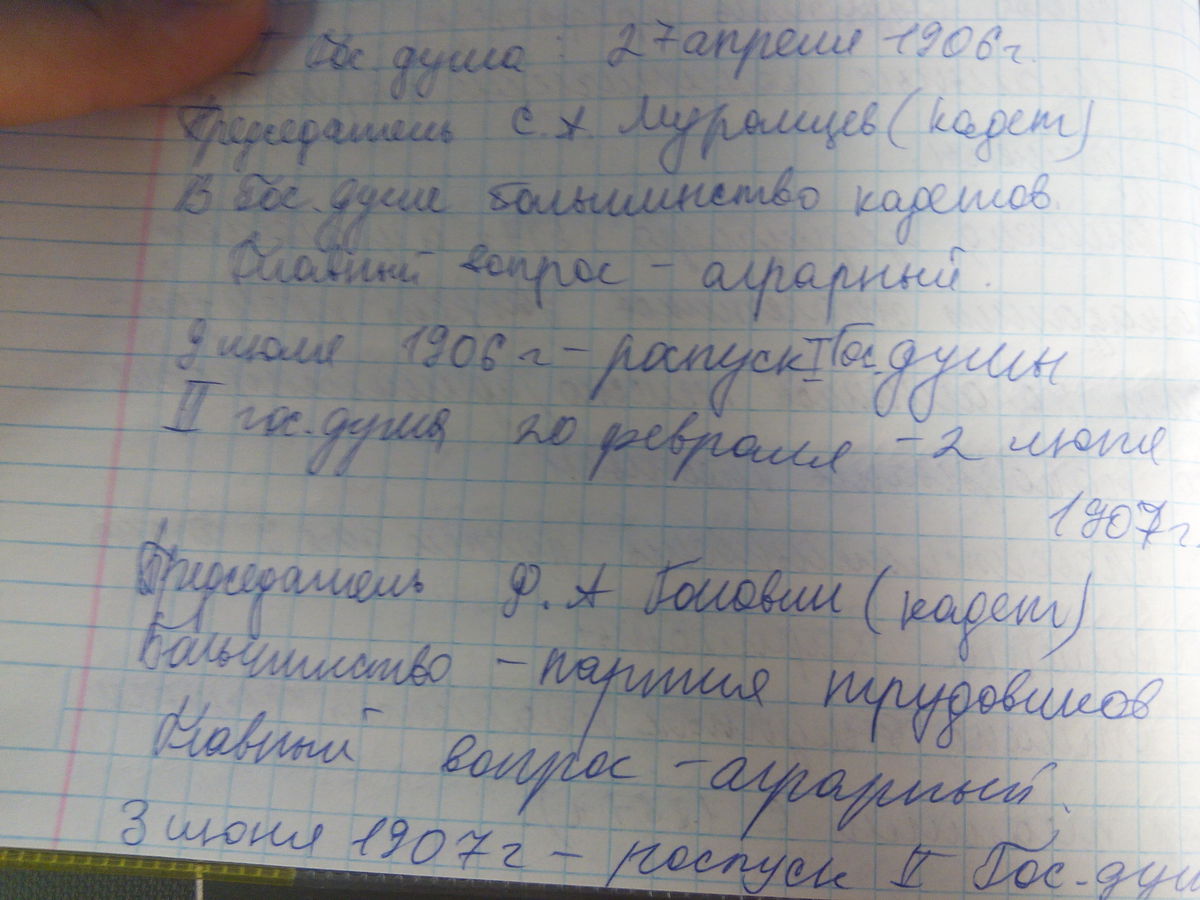 I Гос. дума : 27 апреля 1906 г.
Председатель С. А. Муромцев (кадет)
В Гос. думе большинство кадетов.
Главный вопрос - аграрный.
9 июля 1906 г - роспуск I Гос. думы
II гос. дума 20 февраля - 2 июня
1907 г.
Председатель Ф. А Головин (кадет)
Большинство - партия трудовиков
Главный вопрос - аграрный.
3 июня 1907 г - роспуск II Гос. дум